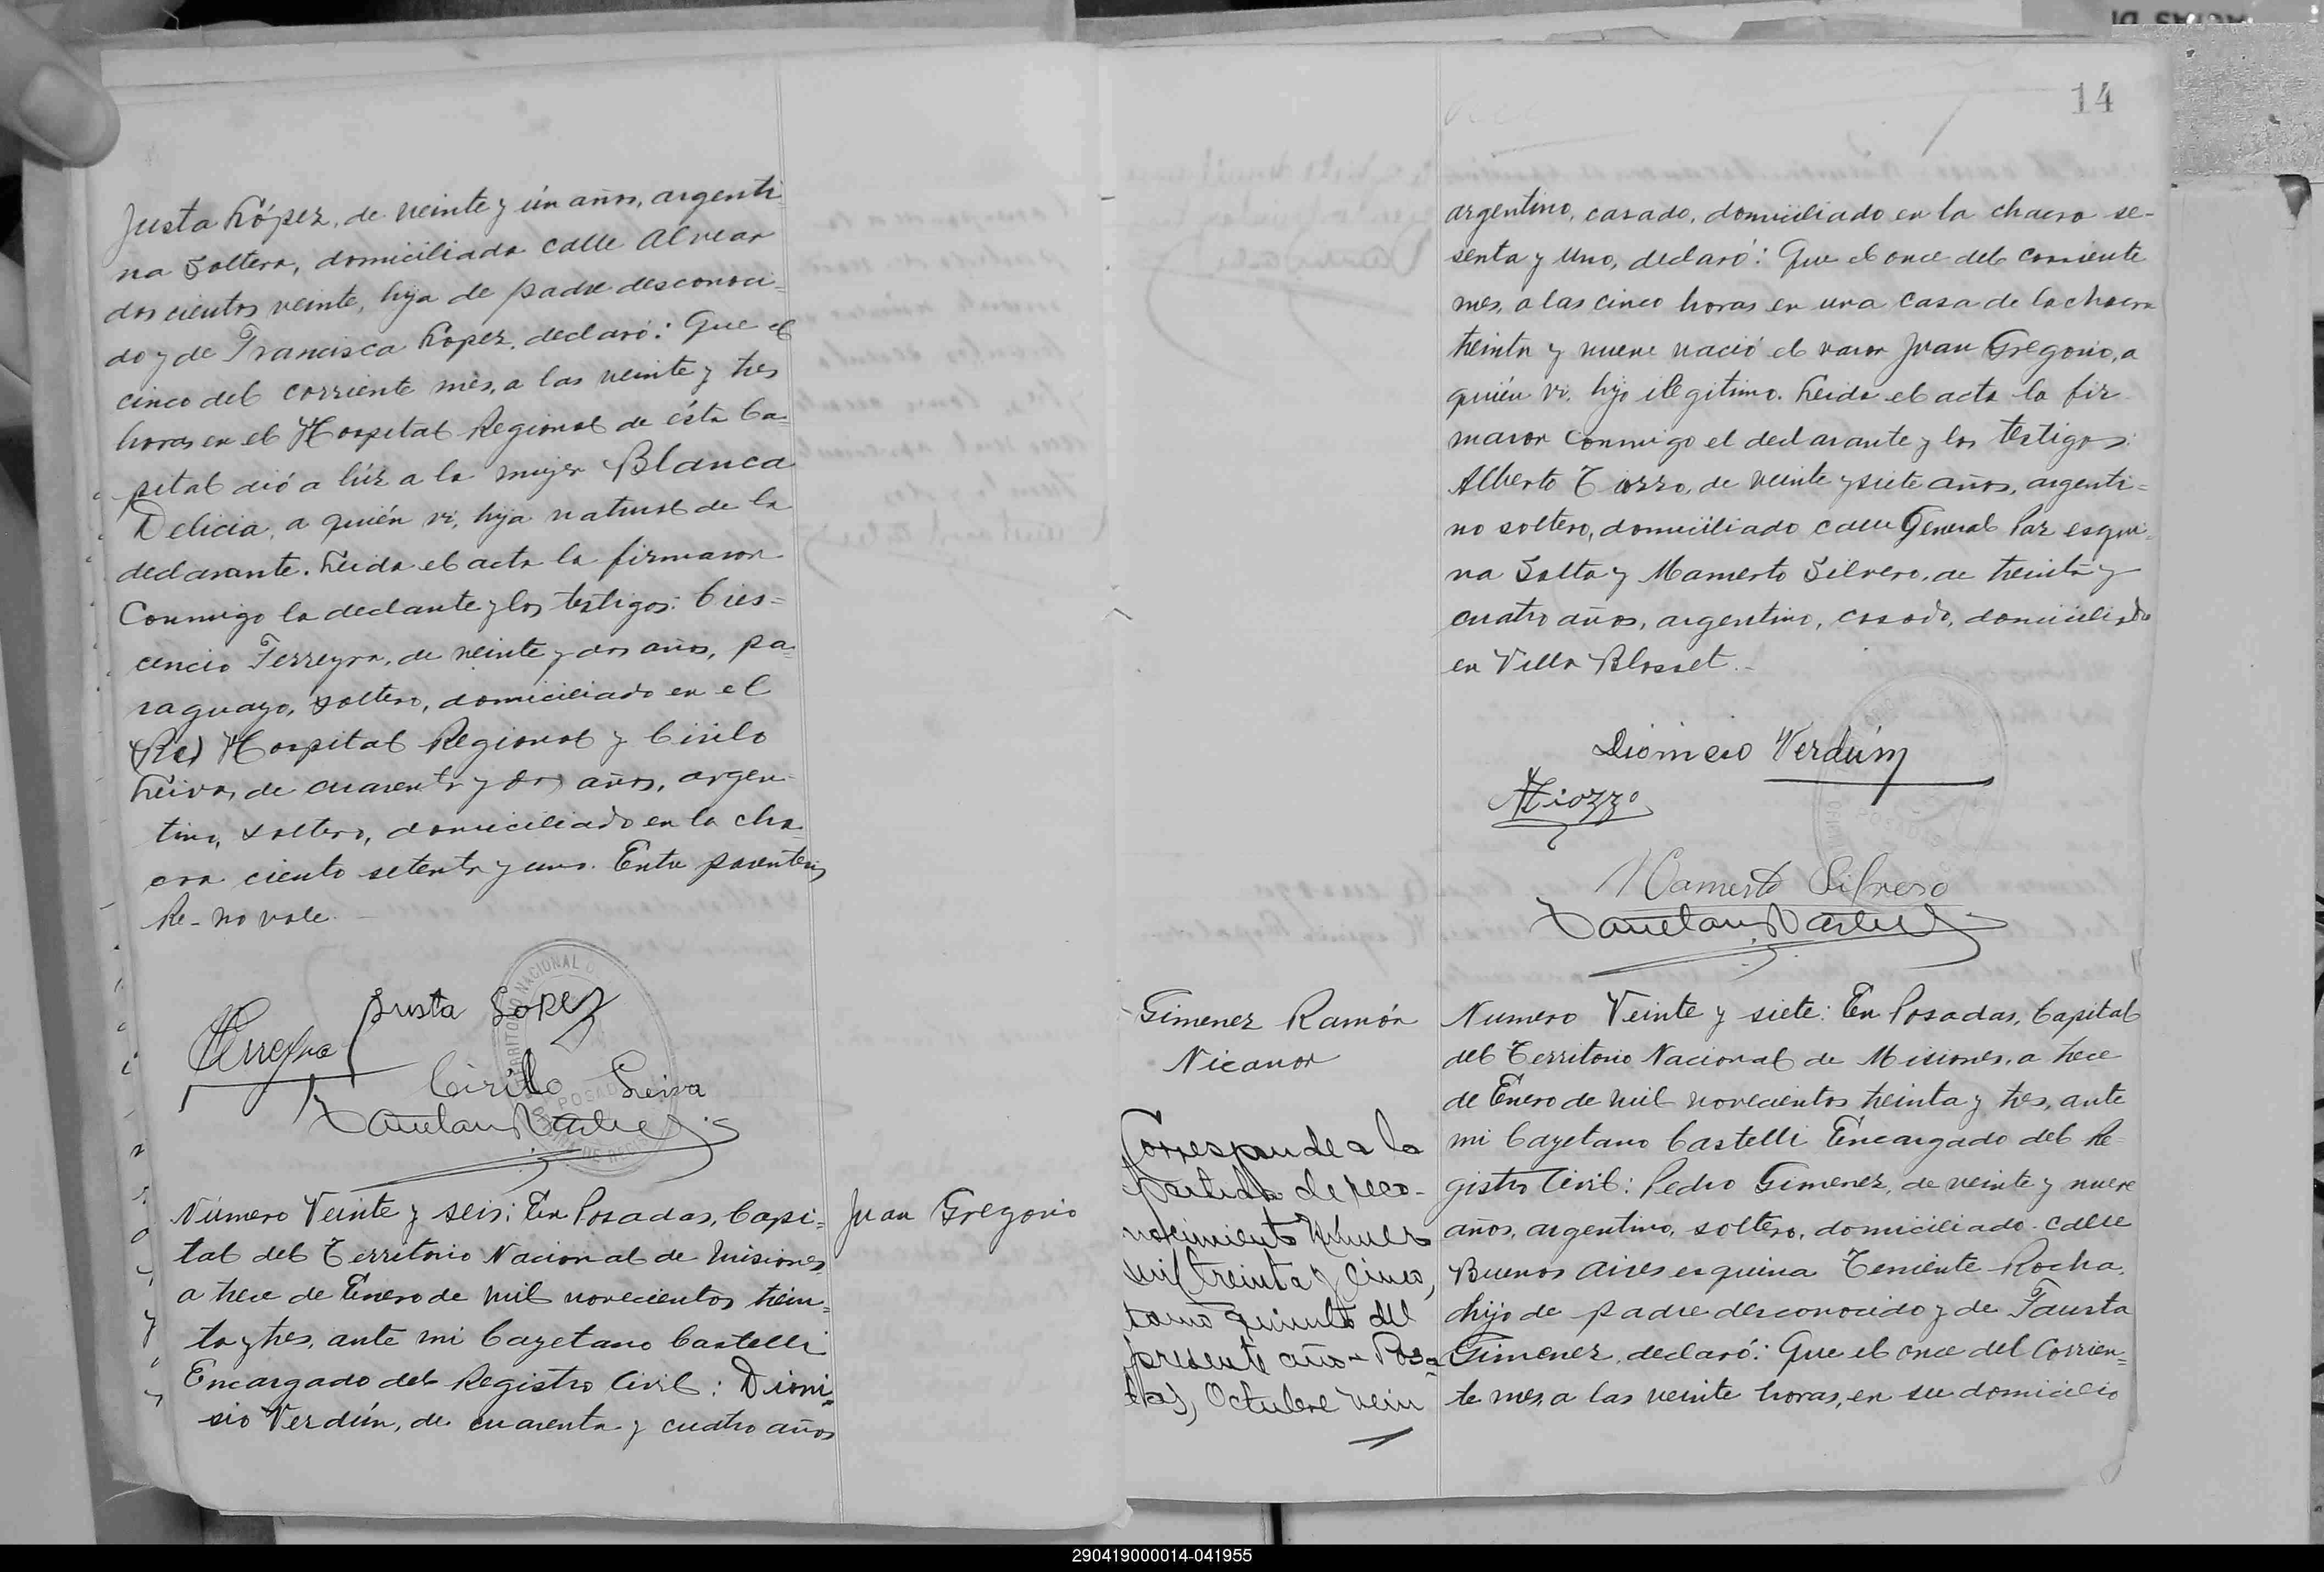 Justa López, de veinte y ún años, argenti
na Soltera, domiciliada calle Alvear
dos cientos veinte, hija de padre desconoci=
do y de Francisca Lopez, declaró: Que el
cinco del corriente més, a las veinte y tres
horas en el Hospital Regional de ésta Ca=
pital dió a lúz a la mujer Blanca
Delicia, a quién vi, hija natural de la
declarante. Leida el acta la firmaron
Conmigo la declante y los testigos: Cres=
cencio Ferreyra, de veinte y dos años, pa=
raguayo, soltero, domiciliado en el
(Re) Hospital Regional y Cirilo
Leiva, de cuarenta y dos años, argen=
tino, soltero, domiciliado en la cha=
cra ciento setenta y uno. Entre parentesis
Re- no vale.
Justa Lopez
CFerreyra
Cirilo Leiva
Número Veinte y seis: En Posadas, Capi=
tal del Territorio Nacional de Misiones
a trece de Enero de mil novecientos trein=
ta y tres, ante mi Cayetano Castelli
Encargado del Registro Civil: Dioni=
sio Verdún, de cuarenta y cuatro años
Juan Gregorio
14
argentino, casado, domiciliado en la chacra se-
senta y uno, declaró: Que el once del corriente
mes, a las cinco horas en una casa de la chacra
treinta y nueve nació el varon Juan Gregorio, a
quién vi, hijo ilegitimo. Leida el acta la fir
maron conmigo el declarante y los testigos:
Alberto Tiozzo, de veinte y siete años, argenti=
no soltero, domiciliado calle General Paz esqui=
na Salta y Mamerto Silvero, de treinta y
cuatro años, argentino, casado, domiciliado
en Villa Blosset.-
Dionicio Verdún
ATiozzo
Mamerto Silvero
Gimenez Ramón
Nicanor
Corresponde a la
partida de reco-
nocimiento número
mil treinta y cinco,
tomo quinto del
presente año - Posa=
das, Octubre vein
Numero Veinte y siete: En Posadas, Capital
del Territorio Nacional de Misiones, a trece
de Enero de mil novecientos treinta y tres, ante
mi Cayetano Castelli Encargado del Re=
gistro Civil: Pedro Gimenez, de veinte y nueve
años, argentino, soltero, domiciliado calle
Buenos Aires esquina Teniente Rocha,
hijo de padre desconocido y de Fausta
Gimenez, declaró: Que el once del Corrien=
te mes, a las veinte horas, en su domicilio
290419000014-041955